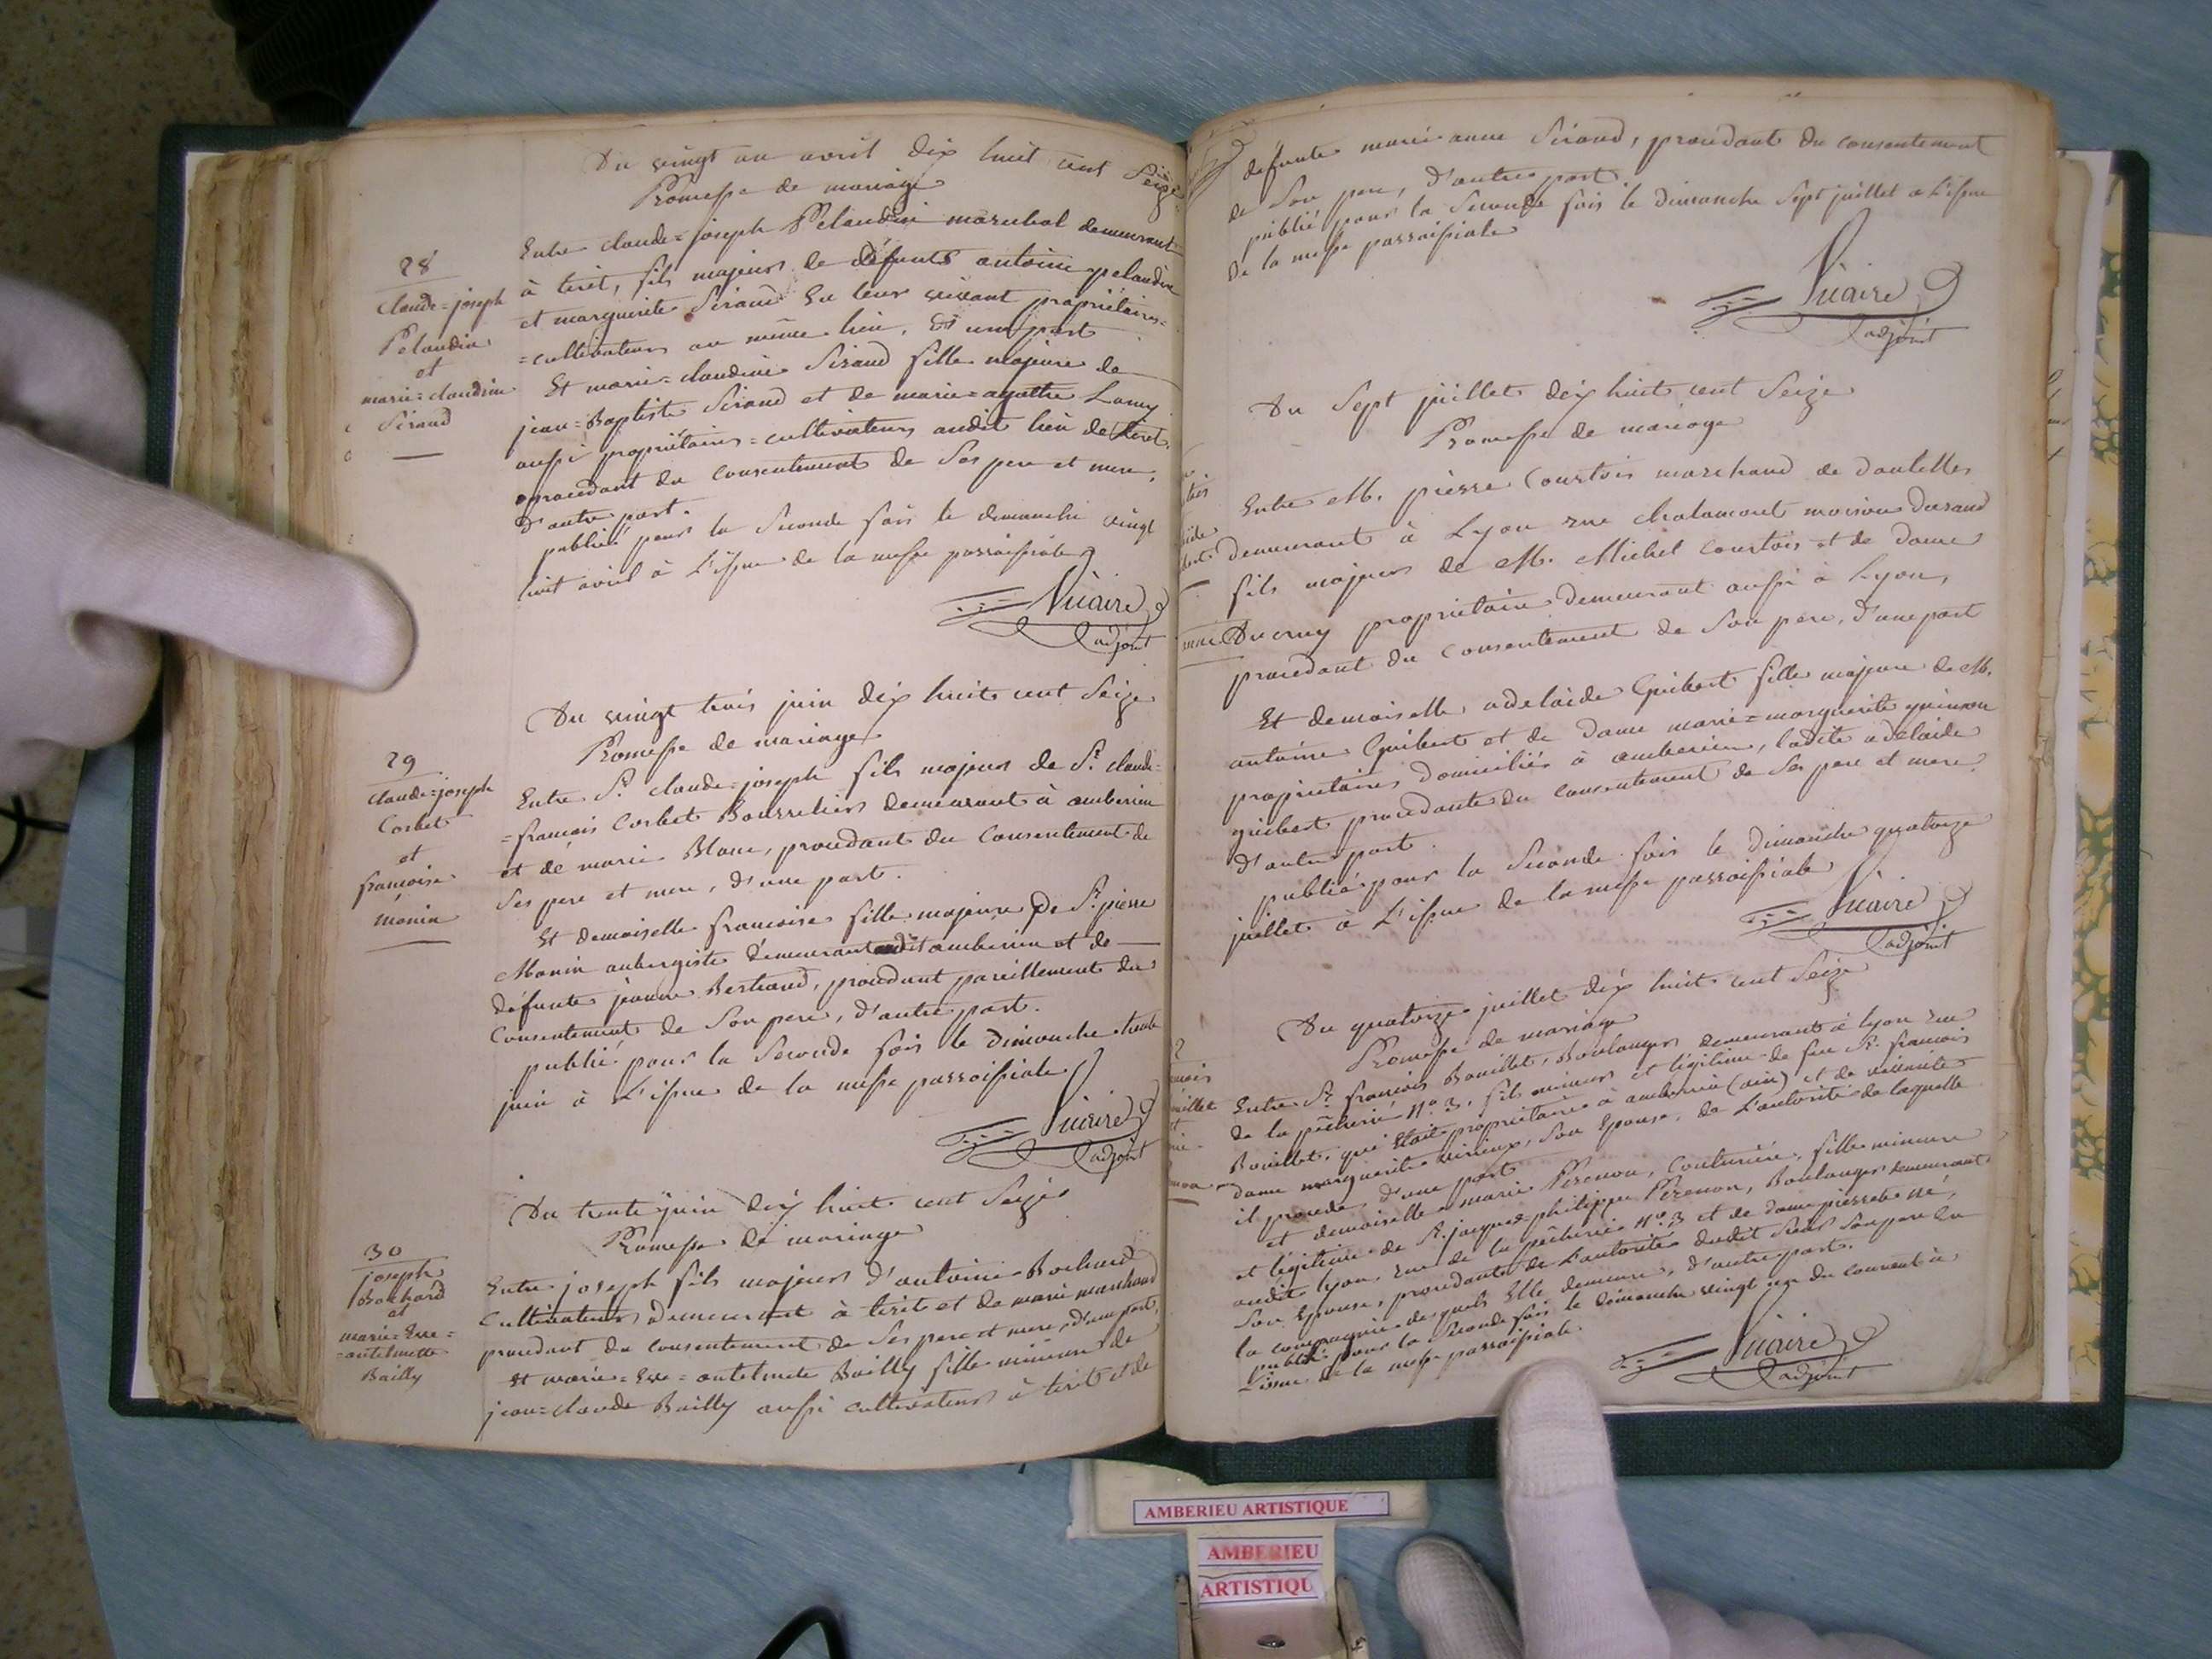 Du vingt un avril dix huit cent Seize
Promesse de mariage
28
claude=joseph
Pelaudin
et
marie=claudine
Siraud
Entre claude=joseph Pelaudin marechal demeurant
à tiret, fils majeur de défunts antoine pelaudin
et marguerite Siraud En leur vivant propriétaires=
=cultivateurs au même lieu, d'une part
Et marie=claudine Siraud fille majeure de
jean=Baptiste Siraud et de marie=agathe Lamy
aussi propriétaires=cultivateurs audit lieu de tiret,
procedant du consentement de Ses pere et mere,
d'autre part.
publié pour la Seconde fois le dimanche vingt
huit avril à L'issue de la messe parroissiale
Vicaire
adjoint
Du vingt trois juin dix huit cent Seize
Promesse de mariage
29
claude=joseph
Corbet
et
francoise
monin
Entre Sr. claude=joseph fils majeur de Sr. claude=
=francois Corbet Bourrelier demeurant à amberieu
et de marie Blanc, procedant du Consentement de
Ses pere et mere, d'une part.
Et demoiselle francoise fille majeure de Sr. pierre
Monin aubergiste demeurant audit amberieu et de
défunte jeanne Bertrand, procedant pareillement du
Consentement de Son pere, d'autre part.
publié pour la Seconde fois le dimanche trente
juin à L'issue de la messe parroissiale
Vicaire
adjoint
Du trente juin dix huit cent Seize
Promesse de mariage
30
joseph
Bochard
et
marie=Eve=
=antelmette
Bailly
Entre joseph fils majeur d'antoine Bochard
Cultivateur demeurant à tiret et de marie marchand
procedant du consentement de Ses pere et mere, d'une part,
Et marie=Eve=antelmete Bailly fille mineure de
jean=claude Bailly aussi cultivateur à tiret et de
defunte marie anne Siraud, procedante du consentement
de Son pere, d'autre part.
publié pour la Seconde fois le dimanche Sept juillet a L'issue
de la messe parroissiale
Vicaire
adjoint
Du Sept juillet dix huit cent Seize
Promesse de mariage
Entre M. pierre Courtois marchand de dentelles
demeurant à Lyon rue chalamont maison durand
fils majeur de M. Michel Courtois et de dame
Ducruy propriétaire demeurant aussi à Lyon,
procedant du Consentement de Son pere, d'une part
Et demoiselle adelaide Guibert fille majeure de M.
antoine Guibert et de dame marie=marguerite quinson
propriétaires domiciliés à amberieu, ladite adelaide
guibert procedante du consentement de Ses pere et mere
d'autre part.
publié pour la Seconde fois le dimanche quatorze
juillet à L'issue de la messe parroissiale
Vicaire
adjoint
Du quatorze juillet dix huit cent Seize
Promesse de mariage
Entre Sr. francois Bouillet, Boulanger demeurant à lyon rue
de la pêcherie No. 3, fils mineur et légitime de feu Sr. francois
Bouillet, qui Etait propriétaire à amberieu (ain) et de vivante
dame marguerite Son Epouse, de L'autorité de laquelle
il procede, d'une part
et demoiselle marie Perenon, Couturiére, fille mineure
et légitime de Sr. jacques philippe Perenon, Boulanger demeurant
audit lyon, rue de la pêcherie No. 3 et de dame pierrette né,
Son Epouse, procedante de L'autorité dudit Sieur Son pere En
la compagnie desquels Elle demeure, d'autre part.
publié pour la Seconde fois le dimanche vingt un du courant à
L'issue de la messe parroissiale.
Vicaire
adjoint
AMBERIEU ARTISTIQUE
AMBERIEU
ARTISTIQU